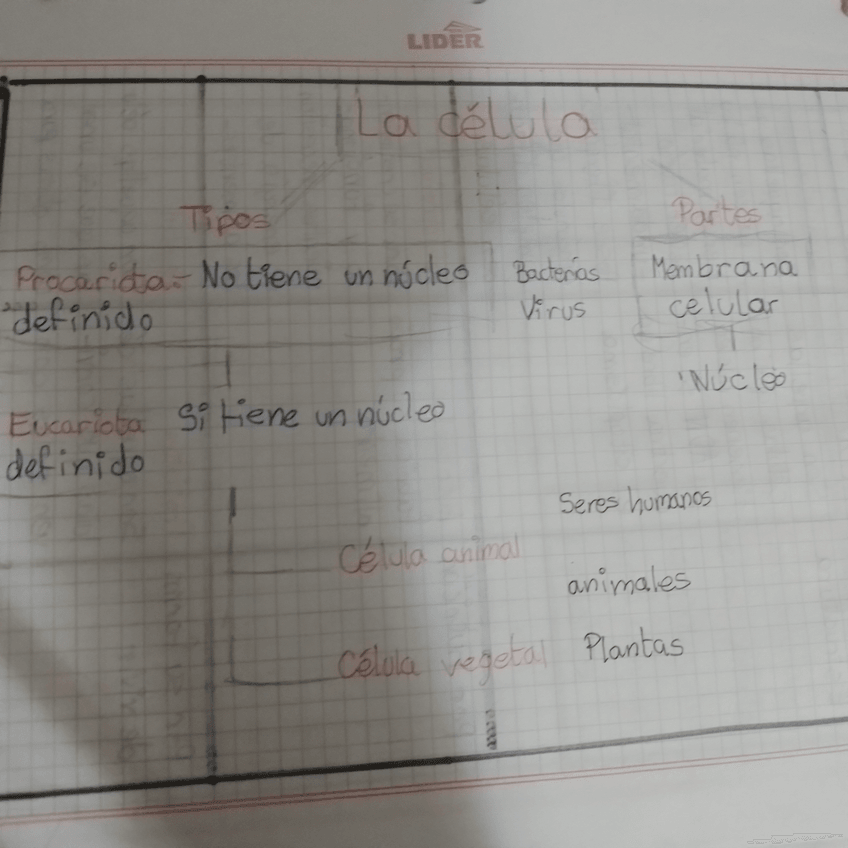 LIDER
La célula
Tipos
Partes
Procariota.- No tiene un núcleo
definido
Bacterias
Virus
Membrana
celular
Núcleo
Eucariota Si tiene un núcleo
definido
Seres humanos
Célula animal
animales
Célula vegetal Plantas